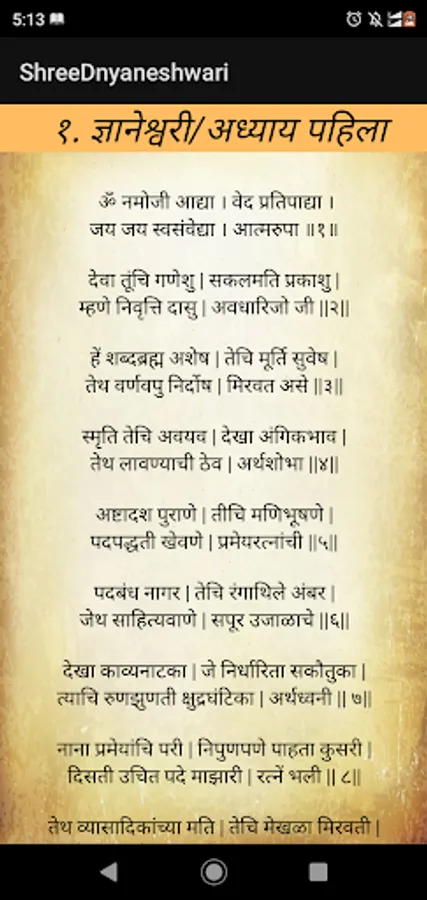 5:13
ShreeDnyaneshwari
१. ज्ञानेश्वरी/अध्याय पहिला
ॐ नमोजी आद्या । वेद प्रतिपाद्या ।
जय जय स्वसंवेद्या । आत्मरुपा ॥१॥
देवा तूंचि गणेशु | सकलमति प्रकाशु |
म्हणे निवृत्ति दासु | अवधारिजो जी ||२||
हें शब्दब्रह्म अशेष | तेचि मूर्ति सुवेष |
तेथ वर्णवपु निर्दोष | मिरवत असे ||३||
स्मृति तेचि अवयव | देखा अंगिकभाव |
तेथ लावण्याची ठेव | अर्थशोभा ||४||
अष्टादश पुराणे | तीचि मणिभूषणे |
पदपद्धती खेवणे | प्रमेयरत्नांची ||५||
पदबंध नागर | तेचि रंगाथिले अंबर |
जेथ साहित्यवाणे | सपूर उजाळाचे ||६||
देखा काव्यनाटका | जे निर्धारिता सकौतुका |
त्याचि रुणझुणती क्षुद्रघंटिका | अर्थध्वनी || ७||
नाना प्रमेयांचि परी | निपुणपणे पाहता कुसरी |
दिसती उचित पदे माझारी | रत्नें भली || ८||
तेथ व्यासादिकांच्या मति | तेचि मेखळा मिरवती |